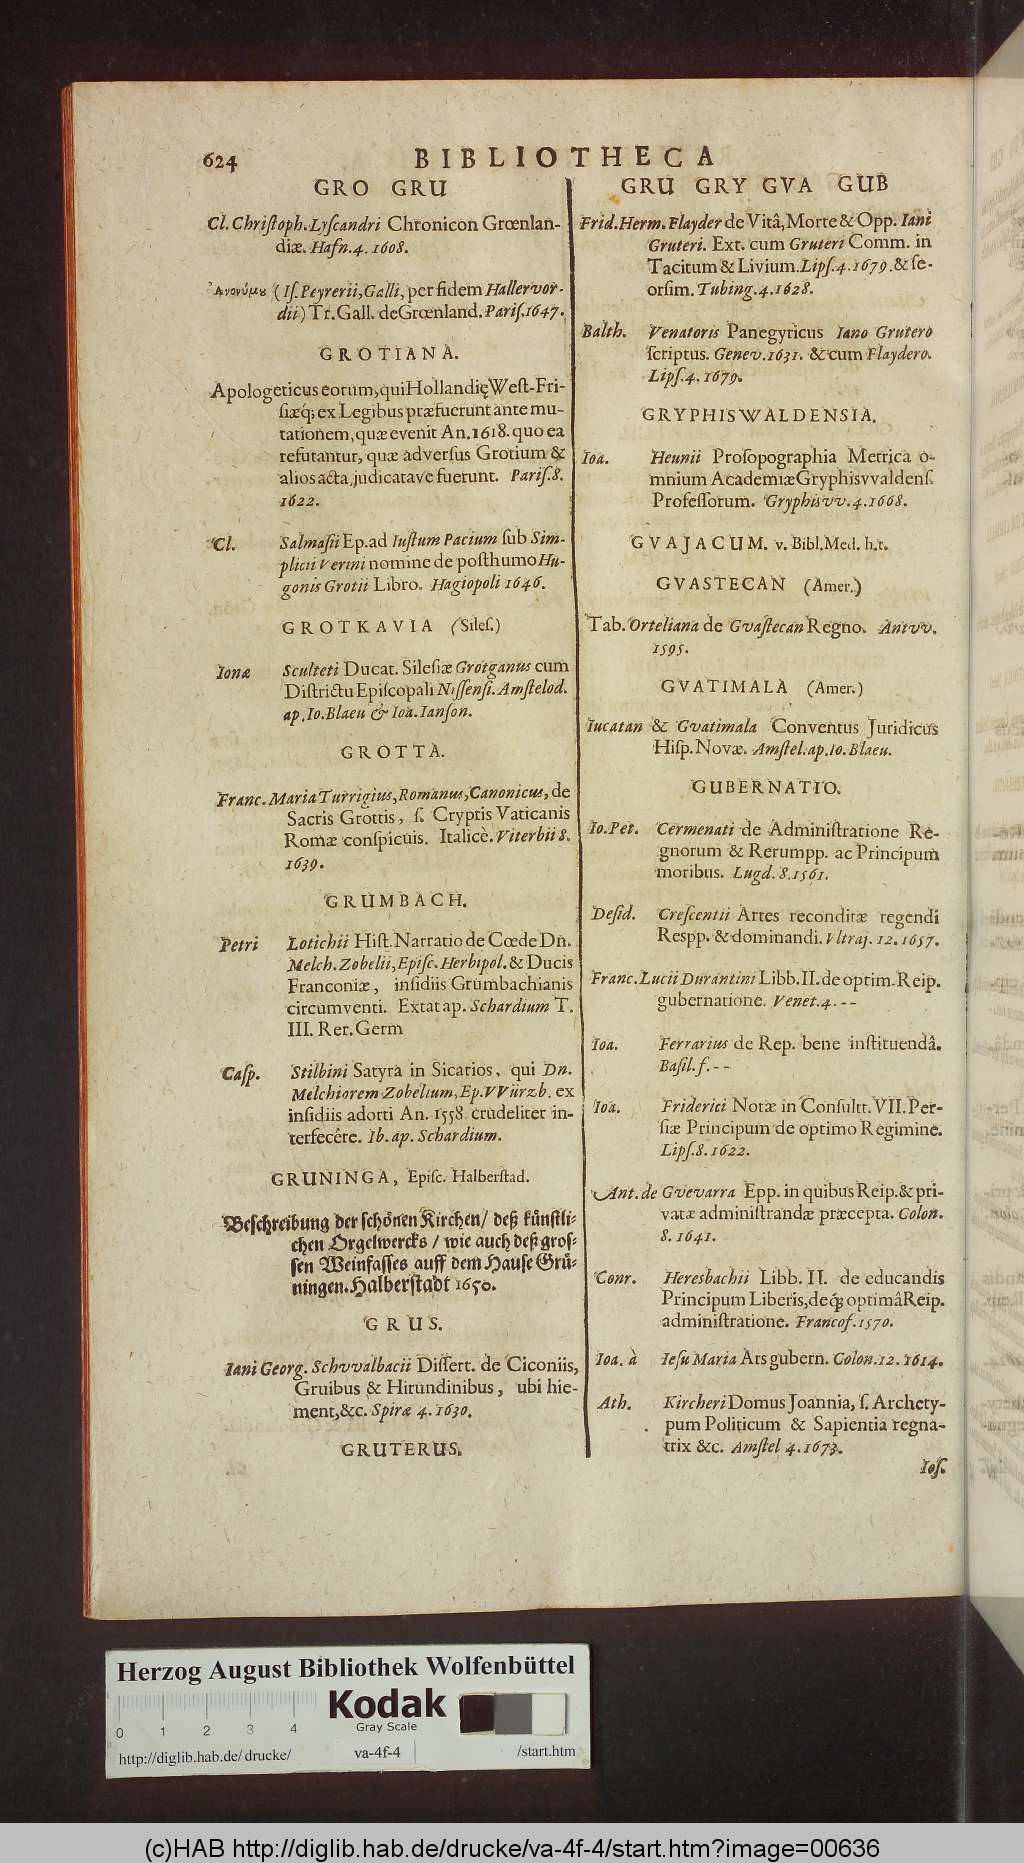 624
BIBLIOTHECA
GRO GRU
Cl. Chriſtoph. Lyſcandri Chronicon Grœnlan-
diæ. Hafn. 4. 1608.
Ἀνονύμȣ (Iſ. Peyrerii, Galli, per fidem Hallervor-
dii) Tr. Gall. de Grœnland. Pariſ. 1647.
GROTIANA.
Apologeticus eorum, qui Hollandię West-Fri-
ſiæq́; ex Legibus præfuerunt ante mu-
tationem, quæ evenit An. 1618. quo ea
refutantur, quæ adversus Grotium &
alios acta, judicatave fuerunt. Pariſ. 8.
1622.
Cl. Salmaſii Ep. ad Iuſtum Pacium ſub Sim-
plicii Verini nomine de poſthumo Hu-
gonis Grotii Libro. Hagiopoli 1646.
GROTKAVIA (Sileſ.)
Ionæ Sculteti Ducat. Sileſiæ Grotganus cum
Diſtrictu Epiſcopali Niſſenſi. Amſtelod.
ap. Io. Blaeu & Ioa. Ianſon.
GROTTA.
Franc. Maria Turrigius, Romanus, Canonicus, de
Sacris Grottis, ſ. Cryptis Vaticanis
Romæ conſpicuis. Italicè. Viterbii 8.
1639.
GRUMBACH.
Petri Lotichii Hiſt. Narratio de Cœde Dn.
Melch. Zobelii, Epiſc. Herbipol. & Ducis
Franconiæ, inſidiis Grumbachianis
circumventi. Extat ap. Schardium T.
III. Rer. Germ
Caſp. Stilbini Satyra in Sicarios, qui Dn.
Melchiorem Zobelium, Ep. VVürzb. ex
inſidiis adorti An. 1558. crudeliter in-
terfecêre. Ib. ap. Schardium.
GRUNINGA, Epiſc. Halberſtad.
Beſchreibung der ſchönen Kirchen / deß künſtli-
chen Orgelwercks / wie auch deß groſ-
ſen Weinfaſſes auff dem Hauſe Grü-
ningen. Halberſtadt 1650.
GRUS.
Iani Georg. Schvvalbacii Diſſert. de Ciconiis,
Gruibus & Hirundinibus, ubi hie-
ment, &c. Spiræ 4. 1630.
GRUTERUS.
GRU GRY GVA GUB
Frid. Herm. Flayder de Vitâ, Morte & Opp. Iani
Gruteri. Ext. cum Gruteri Comm. in
Tacitum & Livium. Lipſ. 4. 1679. & ſe-
orſim. Tubing. 4. 1628.
Balth. Venatoris Panegyricus Iano Grutero
ſcriptus. Genev. 1631. & cum Flaydero.
Lipſ. 4. 1679.
GRYPHISWALDENSIA.
Ioa. Heunii Proſopographia Metrica o-
mnium Academiæ Gryphisvvaldenſ.
Profeſſorum. Gryphisvv. 4. 1668.
GVAJACUM. v. Bibl. Med. h. t.
GVASTECAN (Amer.)
Tab. Orteliana de Gvaſtecan Regno. Antvv.
1595.
GVATIMALA (Amer.)
Iucatan & Gvatimala Conventus Juridicus
Hiſp. Novæ. Amſtel. ap. Io. Blaeu.
GUBERNATIO.
Io. Pet. Cermenati de Adminiſtratione Re-
gnorum & Rerumpp. ac Principum
moribus. Lugd. 8. 1561.
Deſid. Creſcentii Artes reconditæ regendi
Respp. & dominandi. Vltraj. 12. 1657.
Franc. Lucii Durantini Libb. II. de optim. Reip.
gubernatione. Venet. 4. --
Ioa. Ferrarius de Rep. bene inſtituendâ.
Baſil. f. --
Ioa. Friderici Notæ in Conſultt. VII. Per-
ſiæ Principum de optimo Regimine.
Lipſ. 8. 1622.
Ant. de Gvevarra Epp. in quibus Reip. & pri-
vatæ adminiſtrandæ præcepta. Colon.
8. 1641.
Conr. Heresbachii Libb. II. de educandis
Principum Liberis, deq́; optimâ Reip.
adminiſtratione. Francof. 1570.
Ioa. à Ieſu Maria Ars gubern. Colon. 12. 1614.
Ath. Kircheri Domus Joannia, ſ. Archety-
pum Politicum & Sapientia regna-
trix &c. Amſtel 4. 1673.
Ioſ.
Herzog August Bibliothek Wolfenbüttel
Kodak
Gray Scale
0 1 2 3 4
http://diglib.hab.de/drucke/ va-4f-4 /start.htm
(c)HAB http://diglib.hab.de/drucke/va-4f-4/start.htm?image=00636